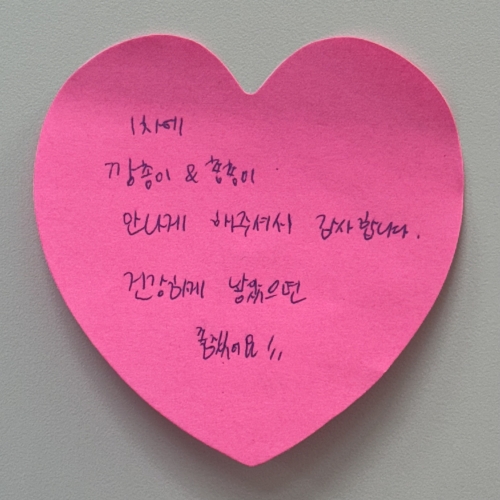 1차에
깡총이 & 총총이
만나게 해주셔서 감사합니다.
건강하게 낳았으면
좋겠어요!!